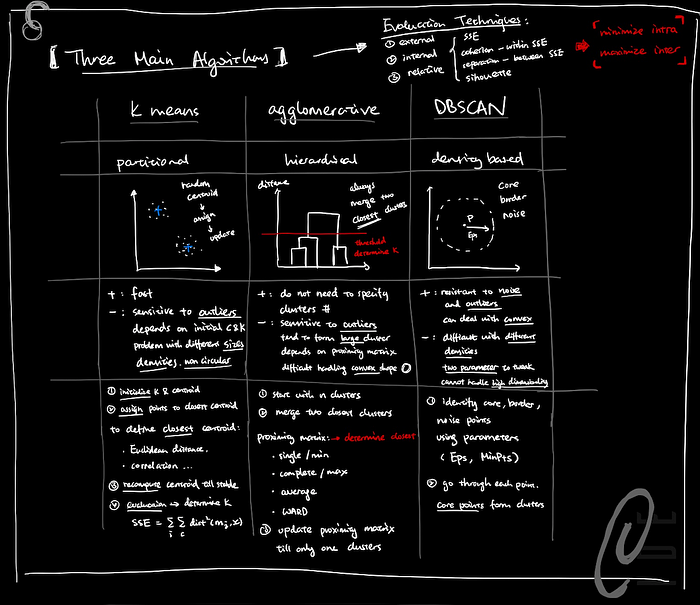 [ Three Main Algorithms ]
Evaluation Techniques :
① external
② internal
③ relative
SSE
cohesion - within SSE
separation - between SSE
silhouette
minimize intra
maximize inter
K means
agglomerative
DBSCAN
partitional
hierarchical
density based
random
centroid
assign
update
distance
always
merge two
closest clusters
threshold
determine K
P
Eps
core
border
noise
+ : fast
- : sensitive to outliers
depends on initial C&K
problem with different sizes
densities, non circular
+ : do not need to specify
clusters #
- : sensitive to outliers
tend to form large cluster
depends on proximity matrix
difficult handling convex shape
+ : resistant to noise
and outliers
can deal with convex
- : difficult with different
densities
two parameter to tweak
cannot handle high dimensionality
① initialize K & centroid
② assign points to closest centroid
to define closest centroid :
· Euclidean distance.
· correlation ...
③ recompute centroid till stable
④ evaluation → determine K
SSE = Σ Σ dist²(mi, x)
i c
① start with n clusters
② merge two closest clusters
proximity matrix: → determine closest
· single / min
· complete / max
· average
· WARD
③ update proximity matrix
till only one clusters
① identify core, border,
noise points
using parameters
( Eps, MinPts)
② go through each point.
core points form clusters